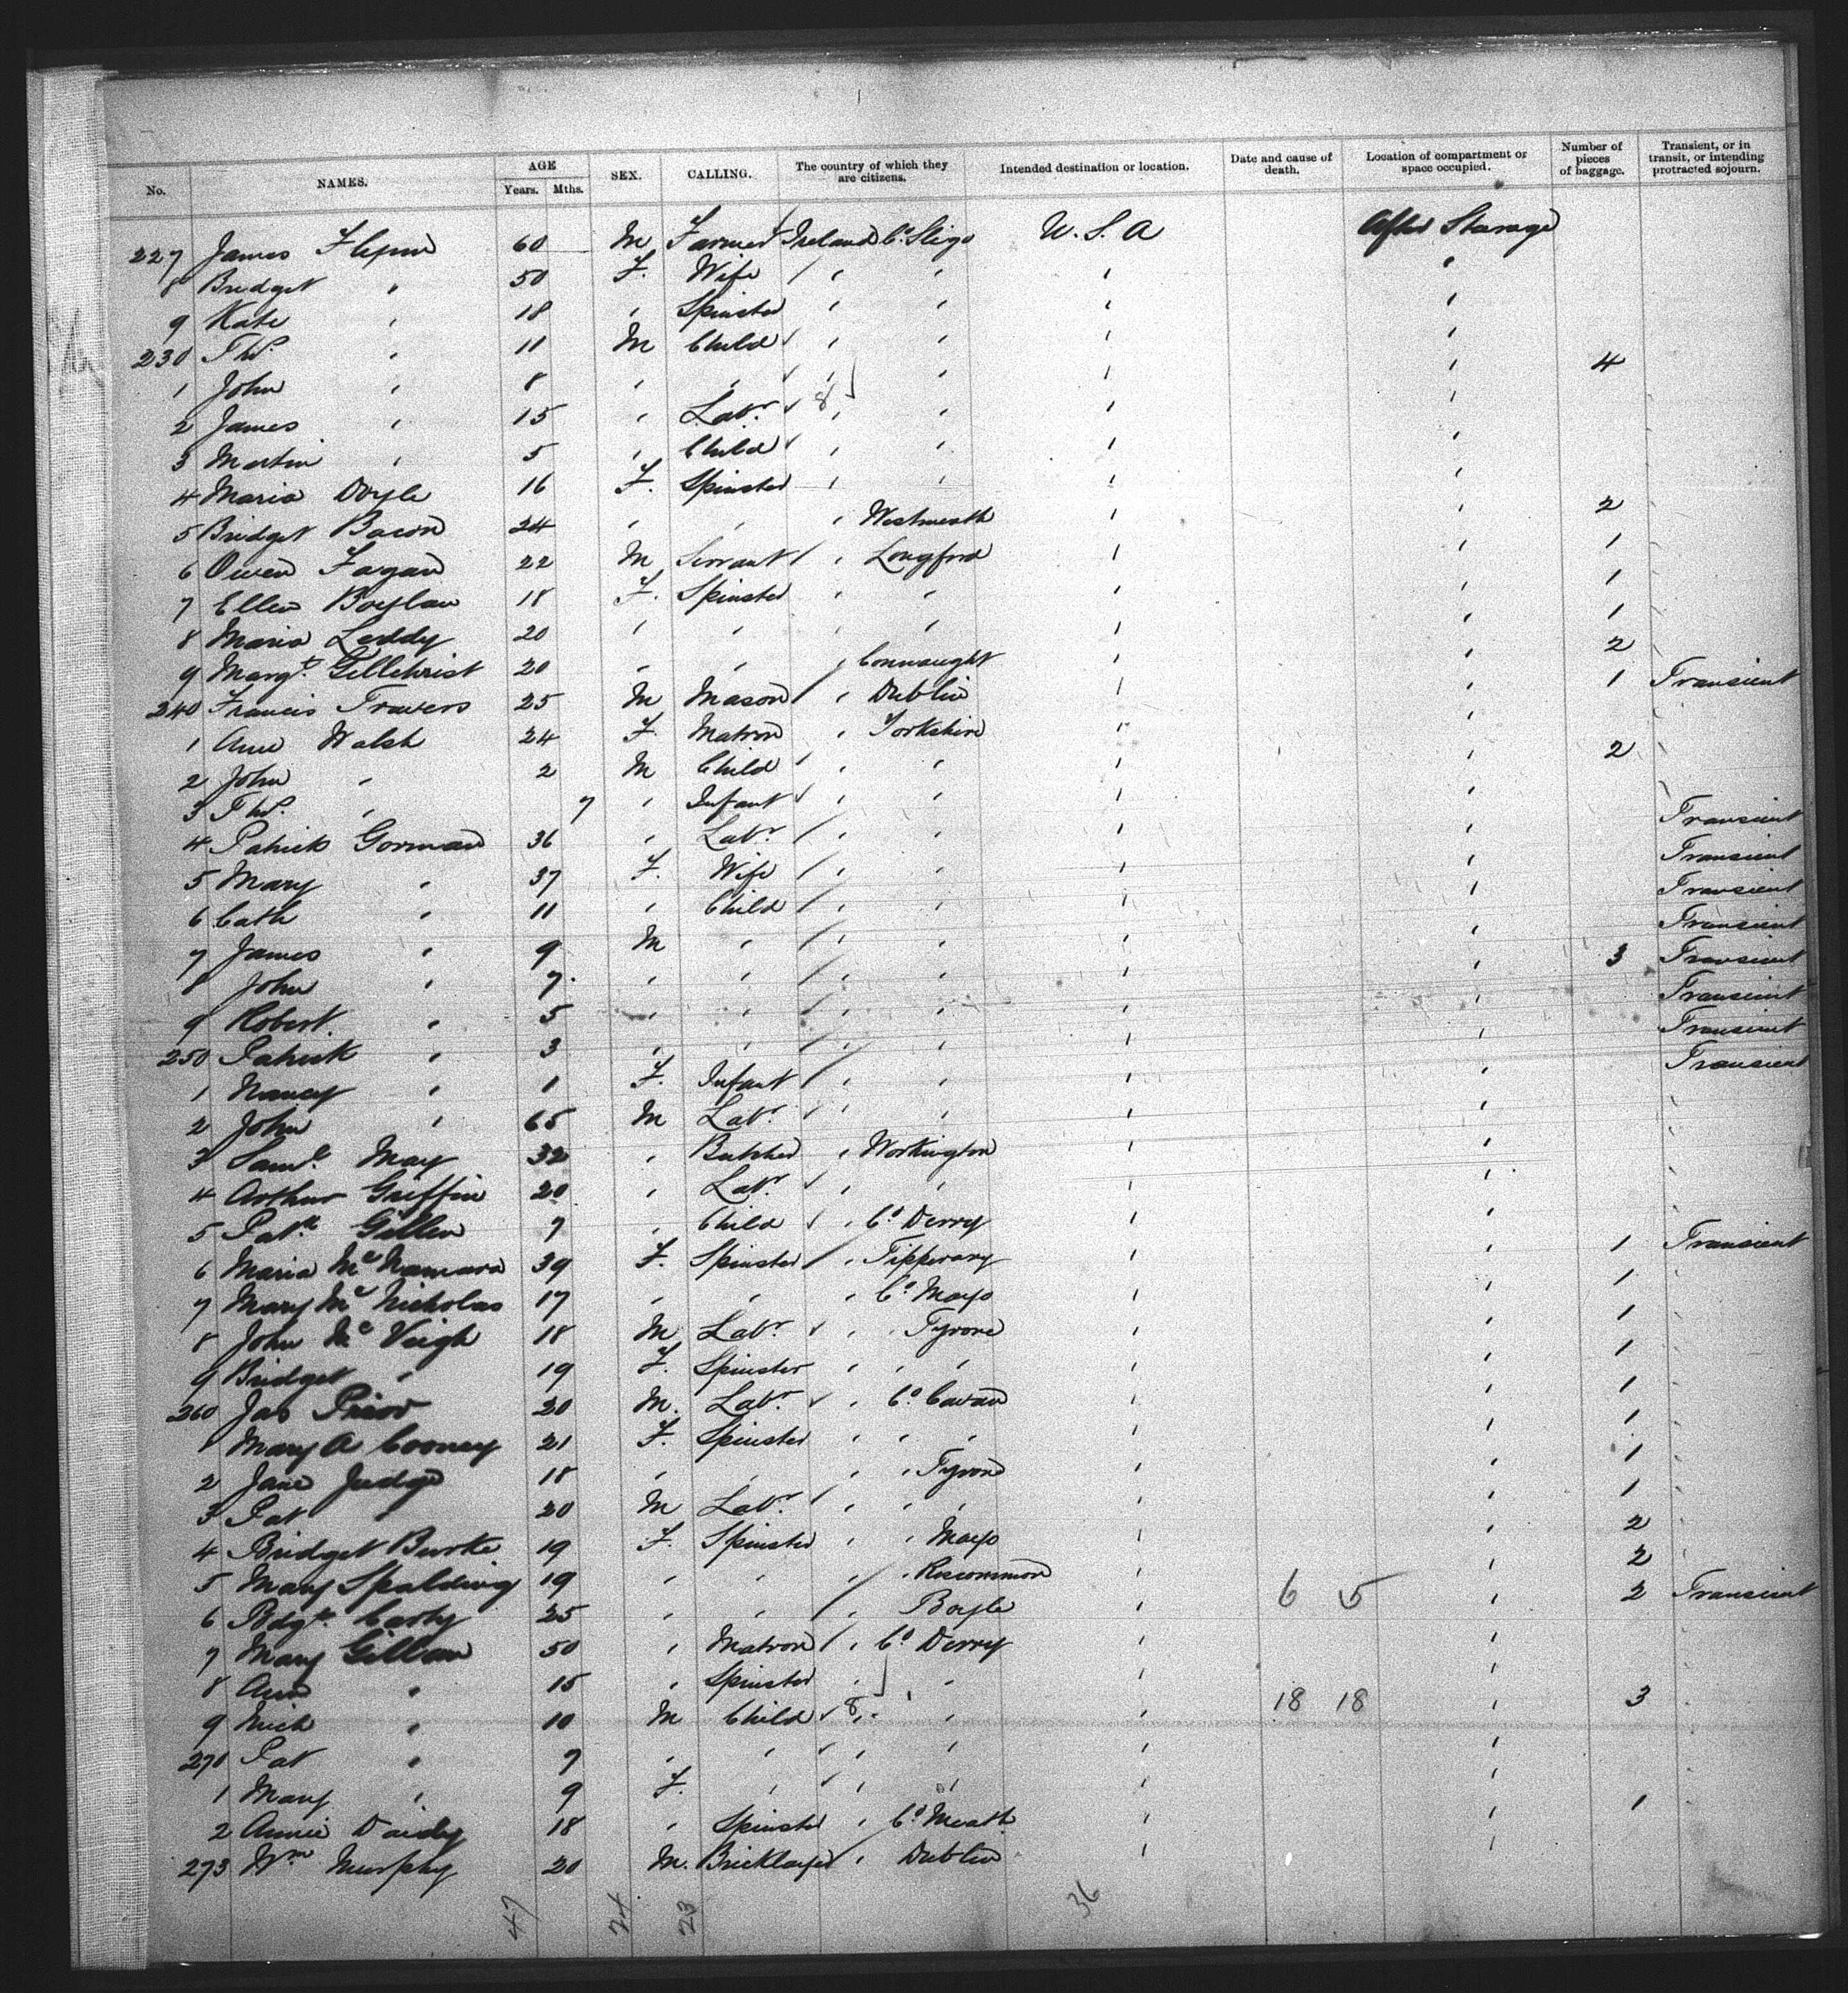 No. NAMES. AGE Years. Mths. SEX. CALLING. The country of which they are citizens. Intended destination or location. Date and cause of death. Location of compartment or space occupied. Number of pieces of baggage. Transient, or in transit, or intending protracted sojourn.
227 James 60 M Farmer Ireland Co. Sligo U.S.A After Starage
8 Bridget " 50 F. Wife " " " "
9 Kate " 18 " Spinster " " " "
230 Thos. " 11 M Child " " " "
1 John " 8 " " " " " " 4
2 James " 15 " Labr. " " " "
3 Martin " 5 " Child " " " "
4 Maria Doyle 16 F. Spinster " " " "
5 Bridget Bacon 24 " " " Westmeath " " 2
6 Owen Fagan 22 M Servant " Longford " " 1
7 Ellen Boylan 18 F. Spinster " " " " 1
8 Maria Leddy 20 " " " " " " 1
9 Margt. Gillchrist 20 " " " Connaught " " 2
240 Francis Travers 25 M Mason " Dublin " " 1 Transient
1 Ann Walsh 24 F. Matron " Yorkshire " "
2 John " 2 M Child " " " " 2
3 Thos. " 7 " Infant " " " "
4 Patrick Gorman 36 " Labr " " " " Transient
5 Mary " 37 F. Wife " " " " Transient
6 Cath " 11 " Child " " " " Transient
7 James " 9 M " " " " " Transient
8 John " 7 " " " " " " 3 Transient
9 Robert. " 5 " " " " " " Transient
250 Patrick " 3 " " " " " " Transient
1 Nancy " 1 F. Infant " " " " Transient
2 John " 65 M Labr " " " "
3 Saml. May 32 " Butcher " Workington " "
4 Arthur Griffin 20 " Labr. " " " "
5 Patk Gillen 7 " Child " Co. Derry " "
6 Maria McNamara 39 F. Spinster " Tipperary " " 1 Transient
7 Mary McNicholas 17 " " " Co. Mayo " " 1
8 John McVeigh 18 M Labr. " " Tyrone " " 1
9 Bridget " 19 F. Spinster " " " " " 1
260 Jas Prior 20 M. Labr " Co. Cavan " " 1
1 Mary A Cooney 21 F. Spinster " " " " " 1
2 Jane Judge 18 " " " " Tyrone " " 1
3 Pat 20 M Labr " " " " " 1
4 Bridget Burke 19 F. Spinster " " Mayo " " 2
5 Mary Spalding 19 " " " " Roscommon " " 2
6 Bdgt. Carty 25 " " " Boyle " 6 5 " 2 Transient
7 Mary Gillan 50 " Matron " Co. Derry " "
8 Ann " 15 " Spinster " " " "
9 Mich " 10 M Child " " " 18 18 " 3
270 Pat " 7 " " " " " "
1 Mary " 9 F. " " " " "
2 Annie 18 " Spinster " Co. Meath " " 1
273 Wm Murphy 20 M. Bricklayer " Dublin " "
47 74 23 36